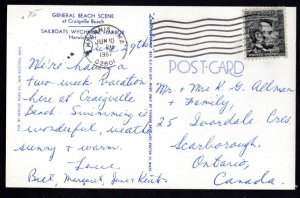 .75
GENERAL BEACH SCENE
at Craigville Beach
SAILBOATS WYCHMERE HARBOR
Harwich
JUN 12
PM
1967
02601
29th
We're having a
two week vacation
here at Craigville
Beach Swimming is
wonderful, weather
sunny & warm.
Love
Bill, Margaret, Jane & Keith
POST CARD
Mr & Mrs R G Allman
& Family,
25 Ivordale Cres
Scarborough,
Ontario,
Canada.